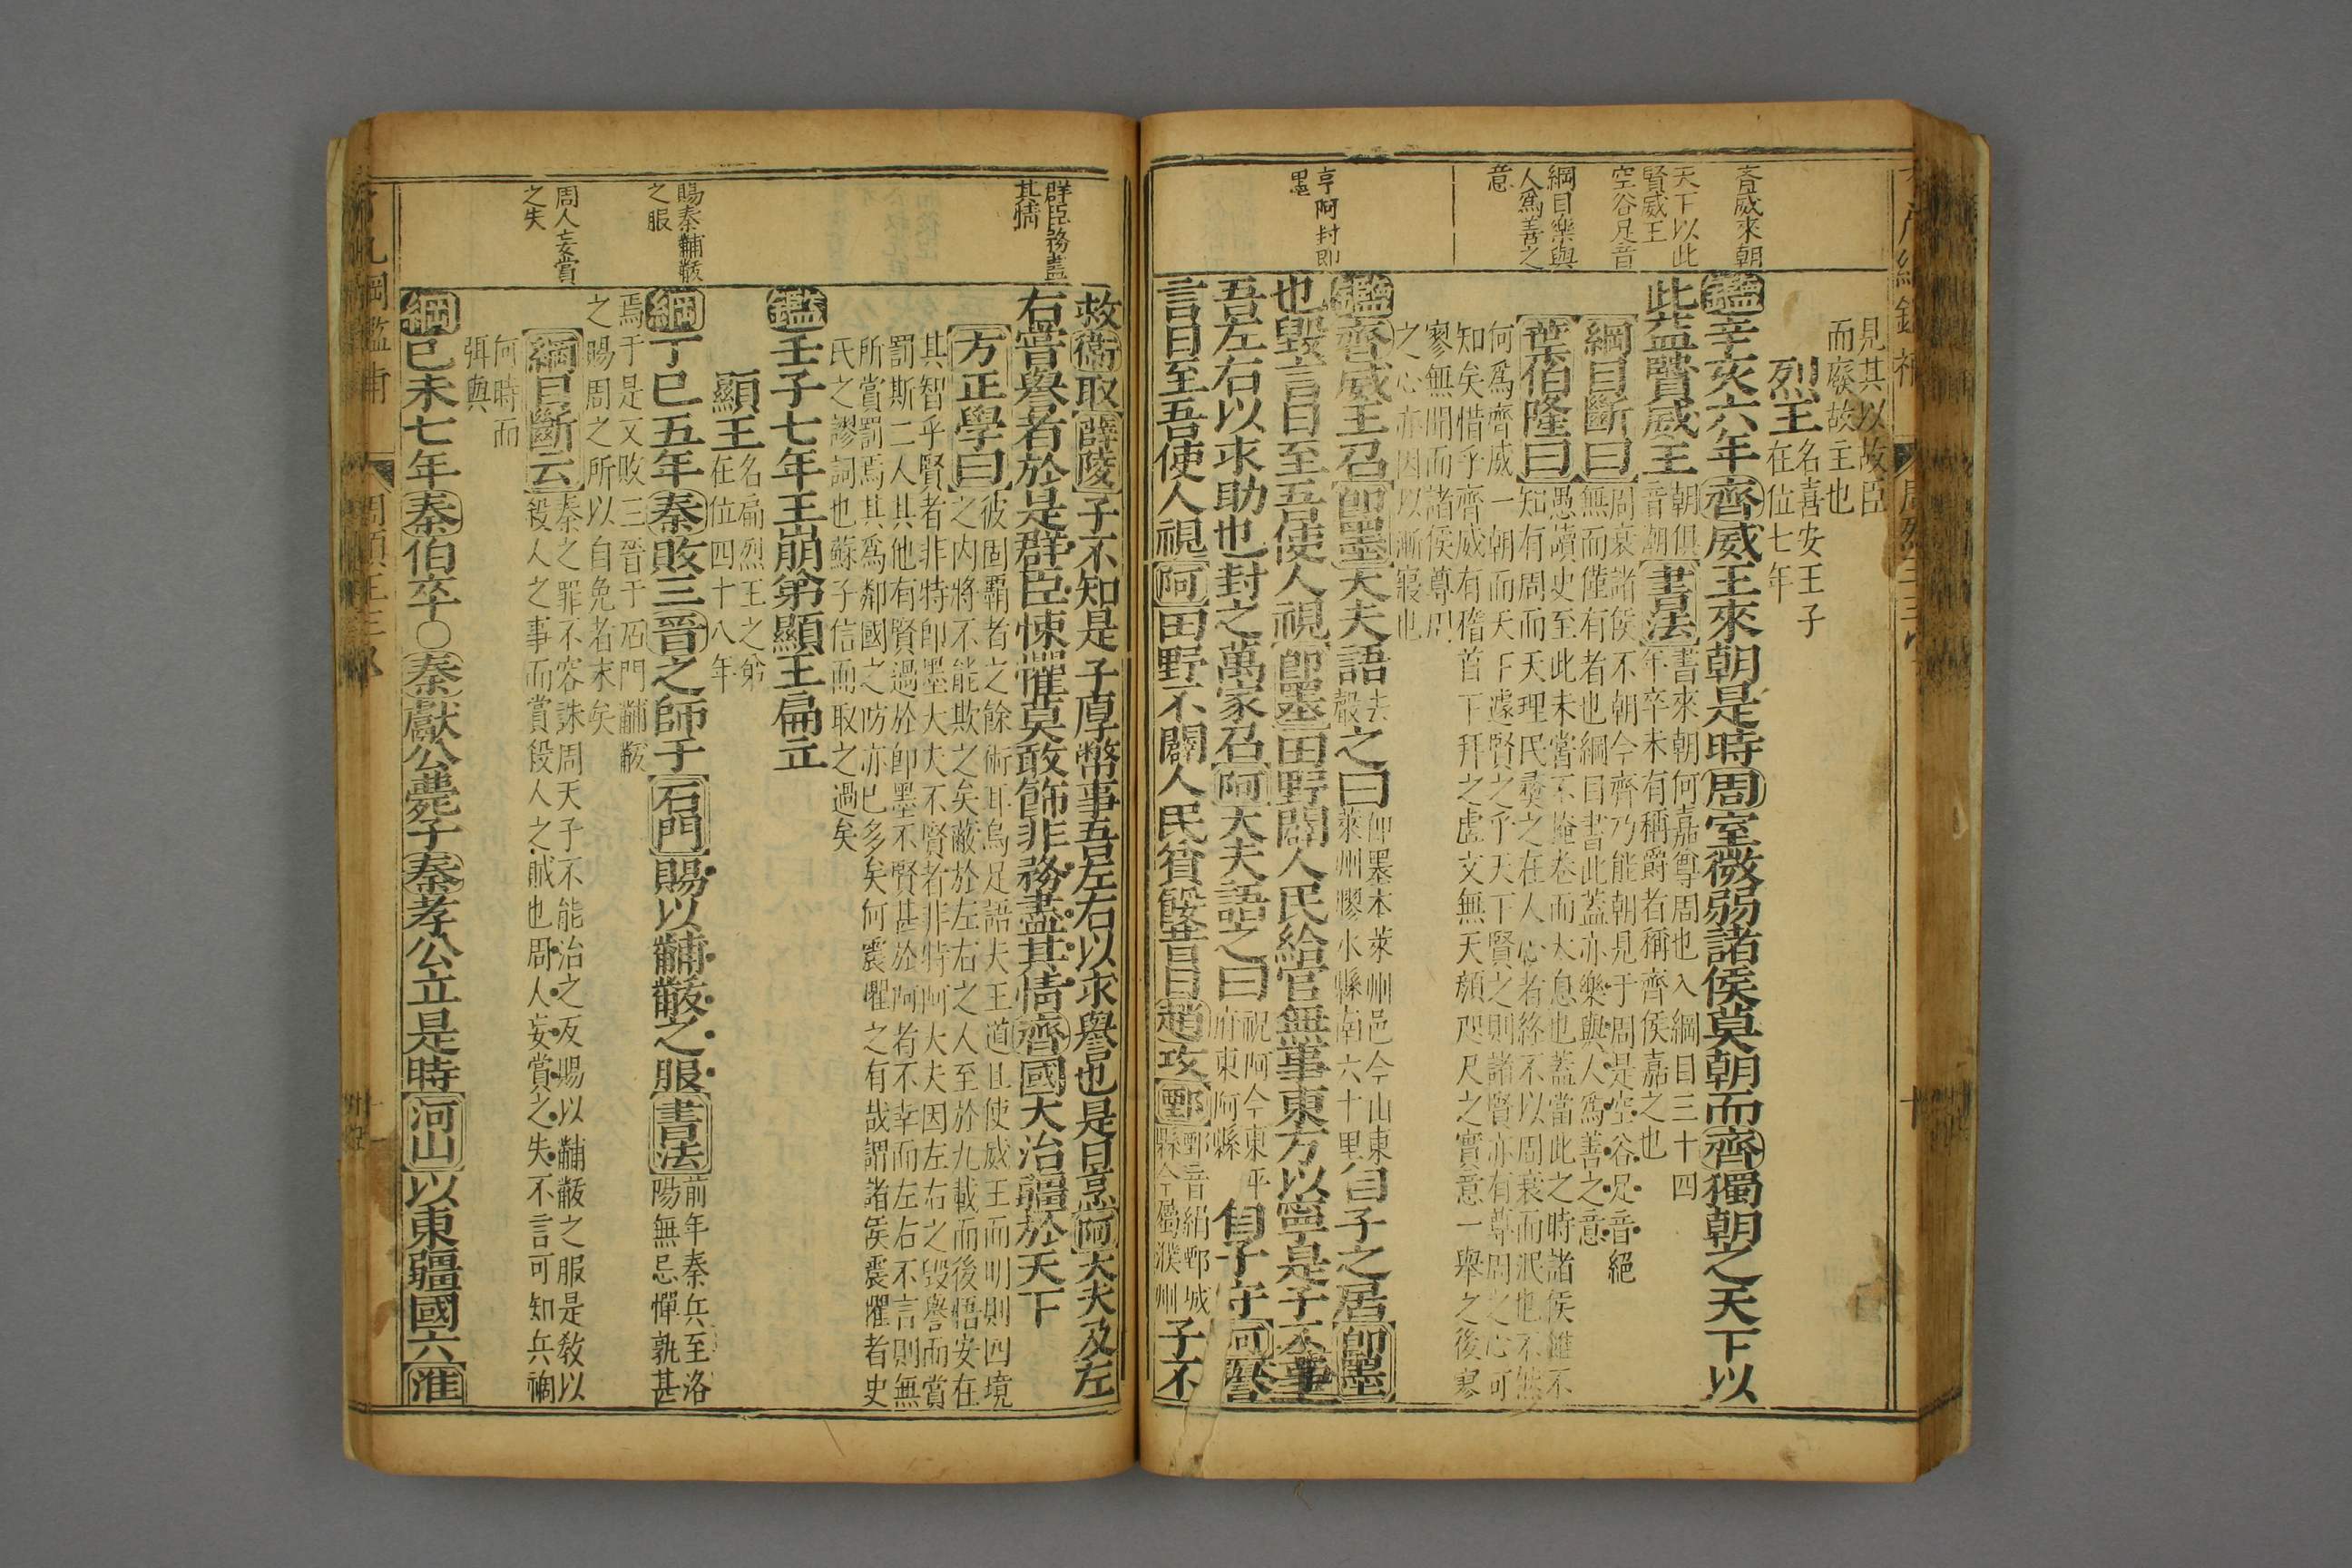 見其以故臣
而廢故主也
烈王 名喜安王子
在位七年
鑑辛亥六年齊威王來朝是時周室微弱諸侯莫朝而齊獨朝之天下以
此益賢威王 朝俱音朝 書法 書來朝何嘉尊周也入綱目三十四
年卒未有稱爵者稱齊侯嘉之也
綱目斷曰 周衰諸侯不朝今齊乃能朝見于周是空谷足音絕
無而僅有者也綱目書此蓋亦樂與人爲善之意
葉伯隆曰 愚讀史至此未嘗不掩卷而大息也蓋當此之時諸侯雖不
知有周而天理民彝之在人心者終不以周衰而泯也不然
何爲齊威一朝而天下遽賢之乎天下賢之則諸賢亦有尊周之心可
知矣惜乎齊威有稽首下拜之虛文無天顏咫尺之實意一舉之後寥
寥無聞而諸侯尊周
之心亦因以漸寢也
鑑齊威王召卽墨大夫語 去聲 之曰 卽墨本萊州邑今山東
萊州膠水縣南六十里 自子之居卽墨
也毀言日至吾使人視卽墨田野闢人民給官無事東方以寧是子不事
吾左右以求助也封之萬家召阿大夫語之曰 祝阿今東平
府東阿縣 自子守阿譽
言日至吾使人視阿田野不闢人民貧餒昔日趙攻鄄 鄄音絹鄄城
縣今屬濮州 子不
齊威來朝
天下以此
賢威王
空谷足音
綱目樂與
人爲善之
意
亨阿封卽
墨
救衞取薛陵子不知是子厚幣事吾左右以求譽也是日烹阿大夫及左
右嘗譽者於是群臣悚懼莫敢飾非務盡其情齊國大治疆於天下
方正學曰 彼固覇者之餘術耳烏足語夫王道且使威王而明則四境
之內將不能欺之矣蔽於左右之人至於九載而後悟安在
其智乎賢者非特卽墨大夫不賢者非特阿大夫因左右之毀譽而賞
罰斯二人其他有賢過於卽墨不賢甚於阿者不幸而左右不言則無
所賞罰焉其爲鄰國之防亦已多矣何震懼之有哉謂諸侯震懼者史
氏之謬詞也蘇子信而取之過矣
鑑壬子七年王崩弟顯王扁立
顯王 名扁烈王之弟
在位四十八年
綱丁巳五年秦敗三晉之師于石門賜以黼黻之服 書法 前年秦兵至洛
陽無忌憚孰甚
焉于是又敗三晉于石門黼黻
之賜周之所以自免者末矣
綱目斷云 秦之罪不容誅周天子不能治之反賜以黼黻之服是敎以
殺人之事而賞殺人之賊也周人妄賞之失不言可知兵禍
何時而
弭與
綱己未七年秦伯卒〇秦獻公薨子秦孝公立是時河山以東疆國六淮
群臣務盡
其情
賜秦黼黻
之服
周人妄賞
之失